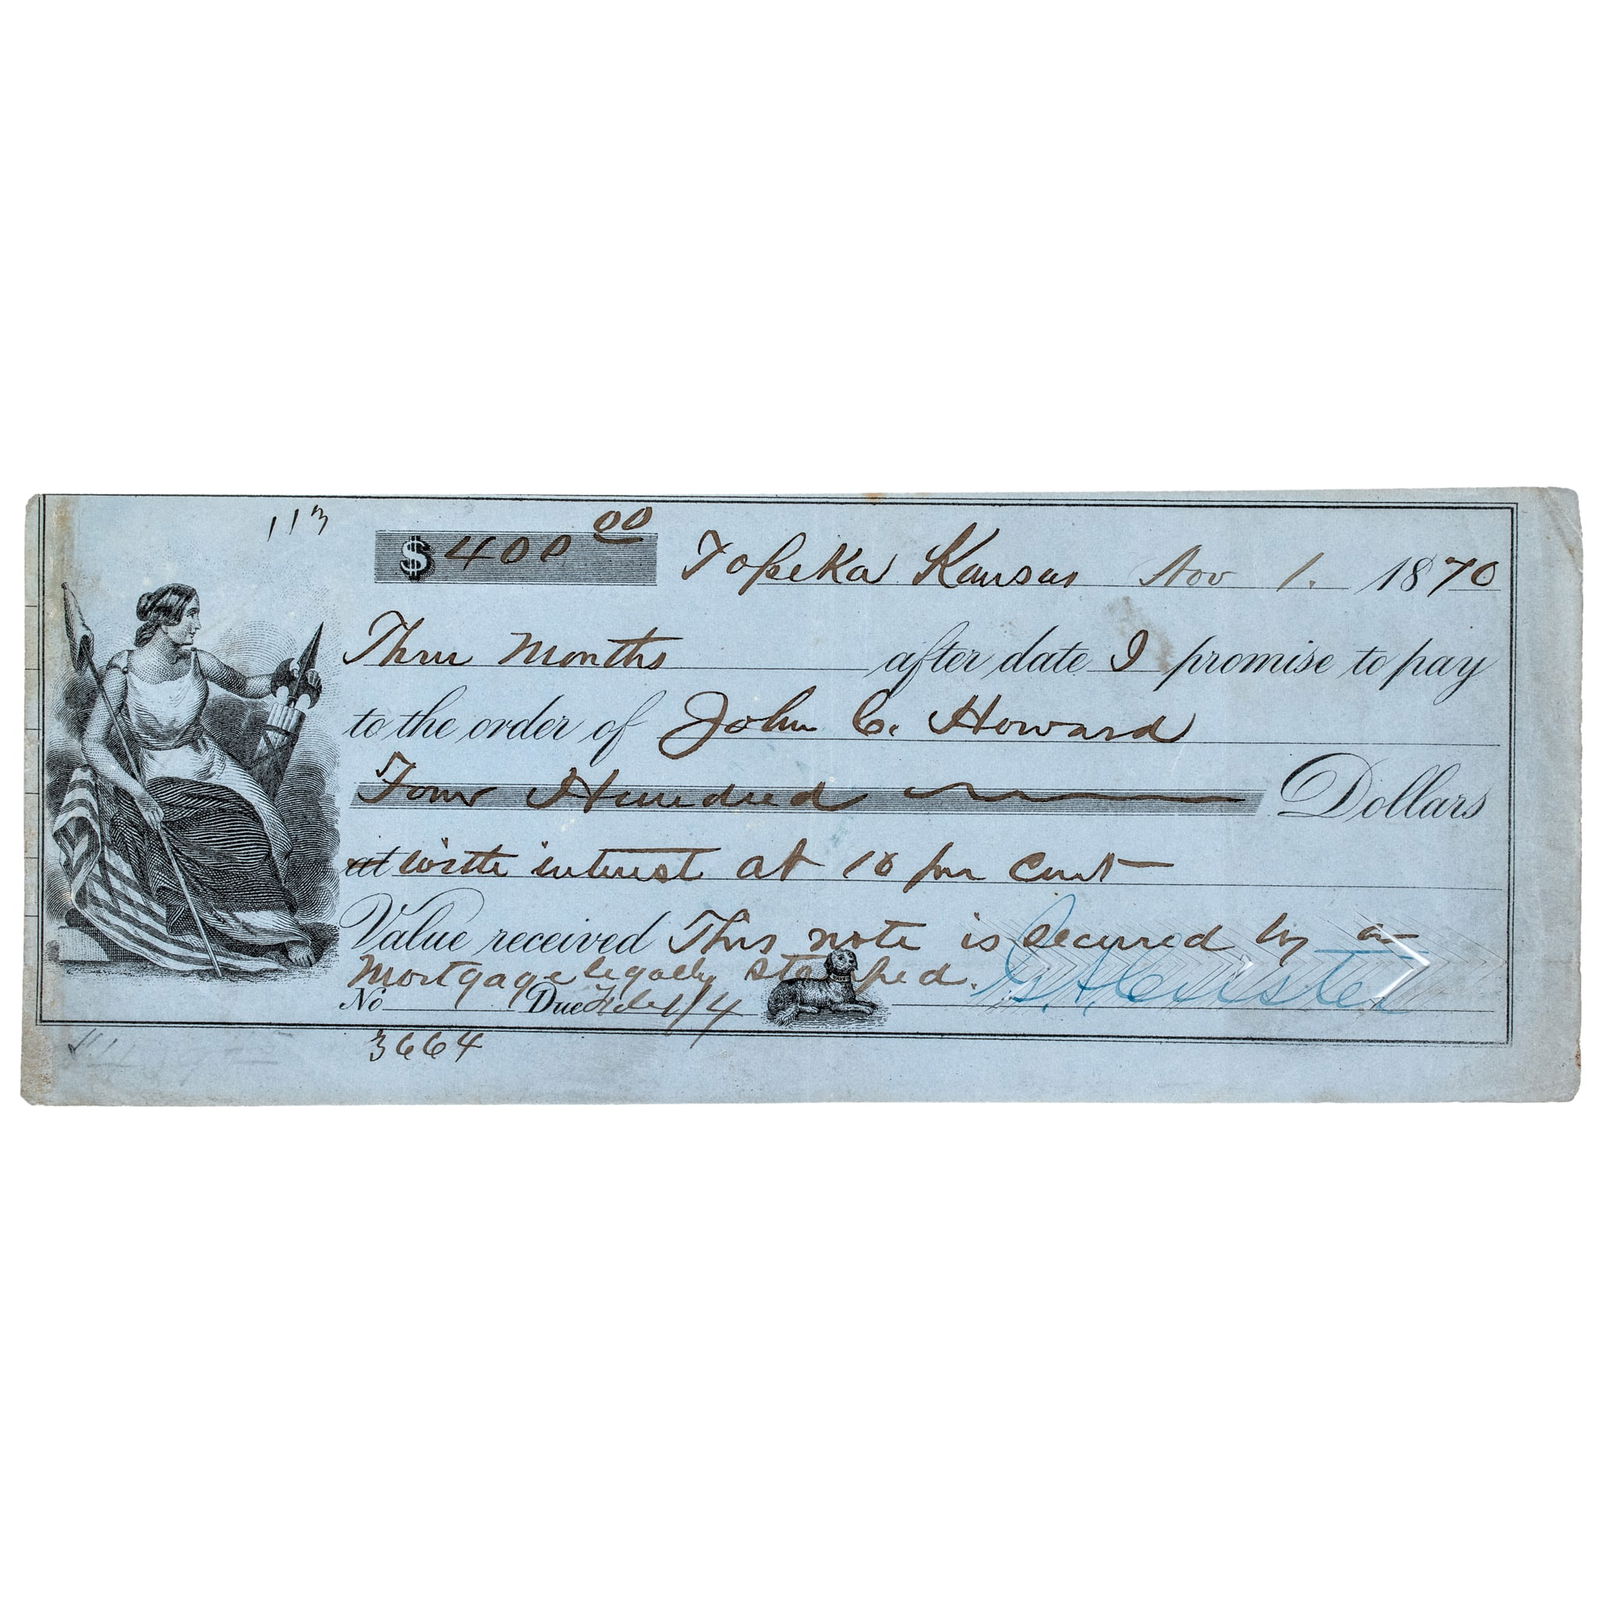 113
$400.00 Topeka Kansas Nov 1. 1870
Three Months after date I promise to pay
to the order of John C. Howard
Four Hundred Dollars
at with interest at 10 per cent
Value received This note is secured by a
Mortgage legally stamped.
No Due Feb 1/4 G A Custer
3664